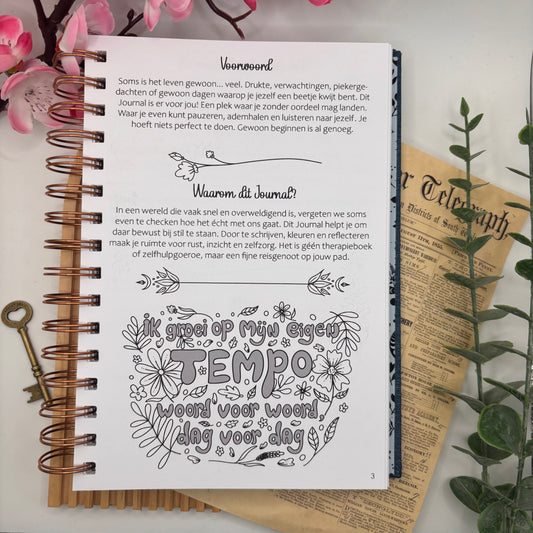 Voorwoord
Soms is het leven gewoon... veel. Drukte, verwachtingen, piekerge-
dachten of gewoon dagen waarop je jezelf een beetje kwijt bent. Dit
Journal is er voor jou! Een plek waar je zonder oordeel mag landen.
Waar je even kunt pauzeren, ademhalen en luisteren naar jezelf. Je
hoeft niets perfect te doen. Gewoon beginnen is al genoeg.
Waarom dit Journal?
In een wereld die vaak snel en overweldigend is, vergeten we soms
even te checken hoe het écht met ons gaat. Dit Journal helpt je om
daar bewust bij stil te staan. Door te schrijven, kleuren en reflecteren
maak je ruimte voor rust, inzicht en zelfzorg. Het is géén therapieboek
of zelfhulpgoeroe, maar een fijne reisgenoot op jouw pad.
ik groei op mijn eigen
TEMPO
woord voor woord,
dag voor dag
3
Telegraph
Districts of South